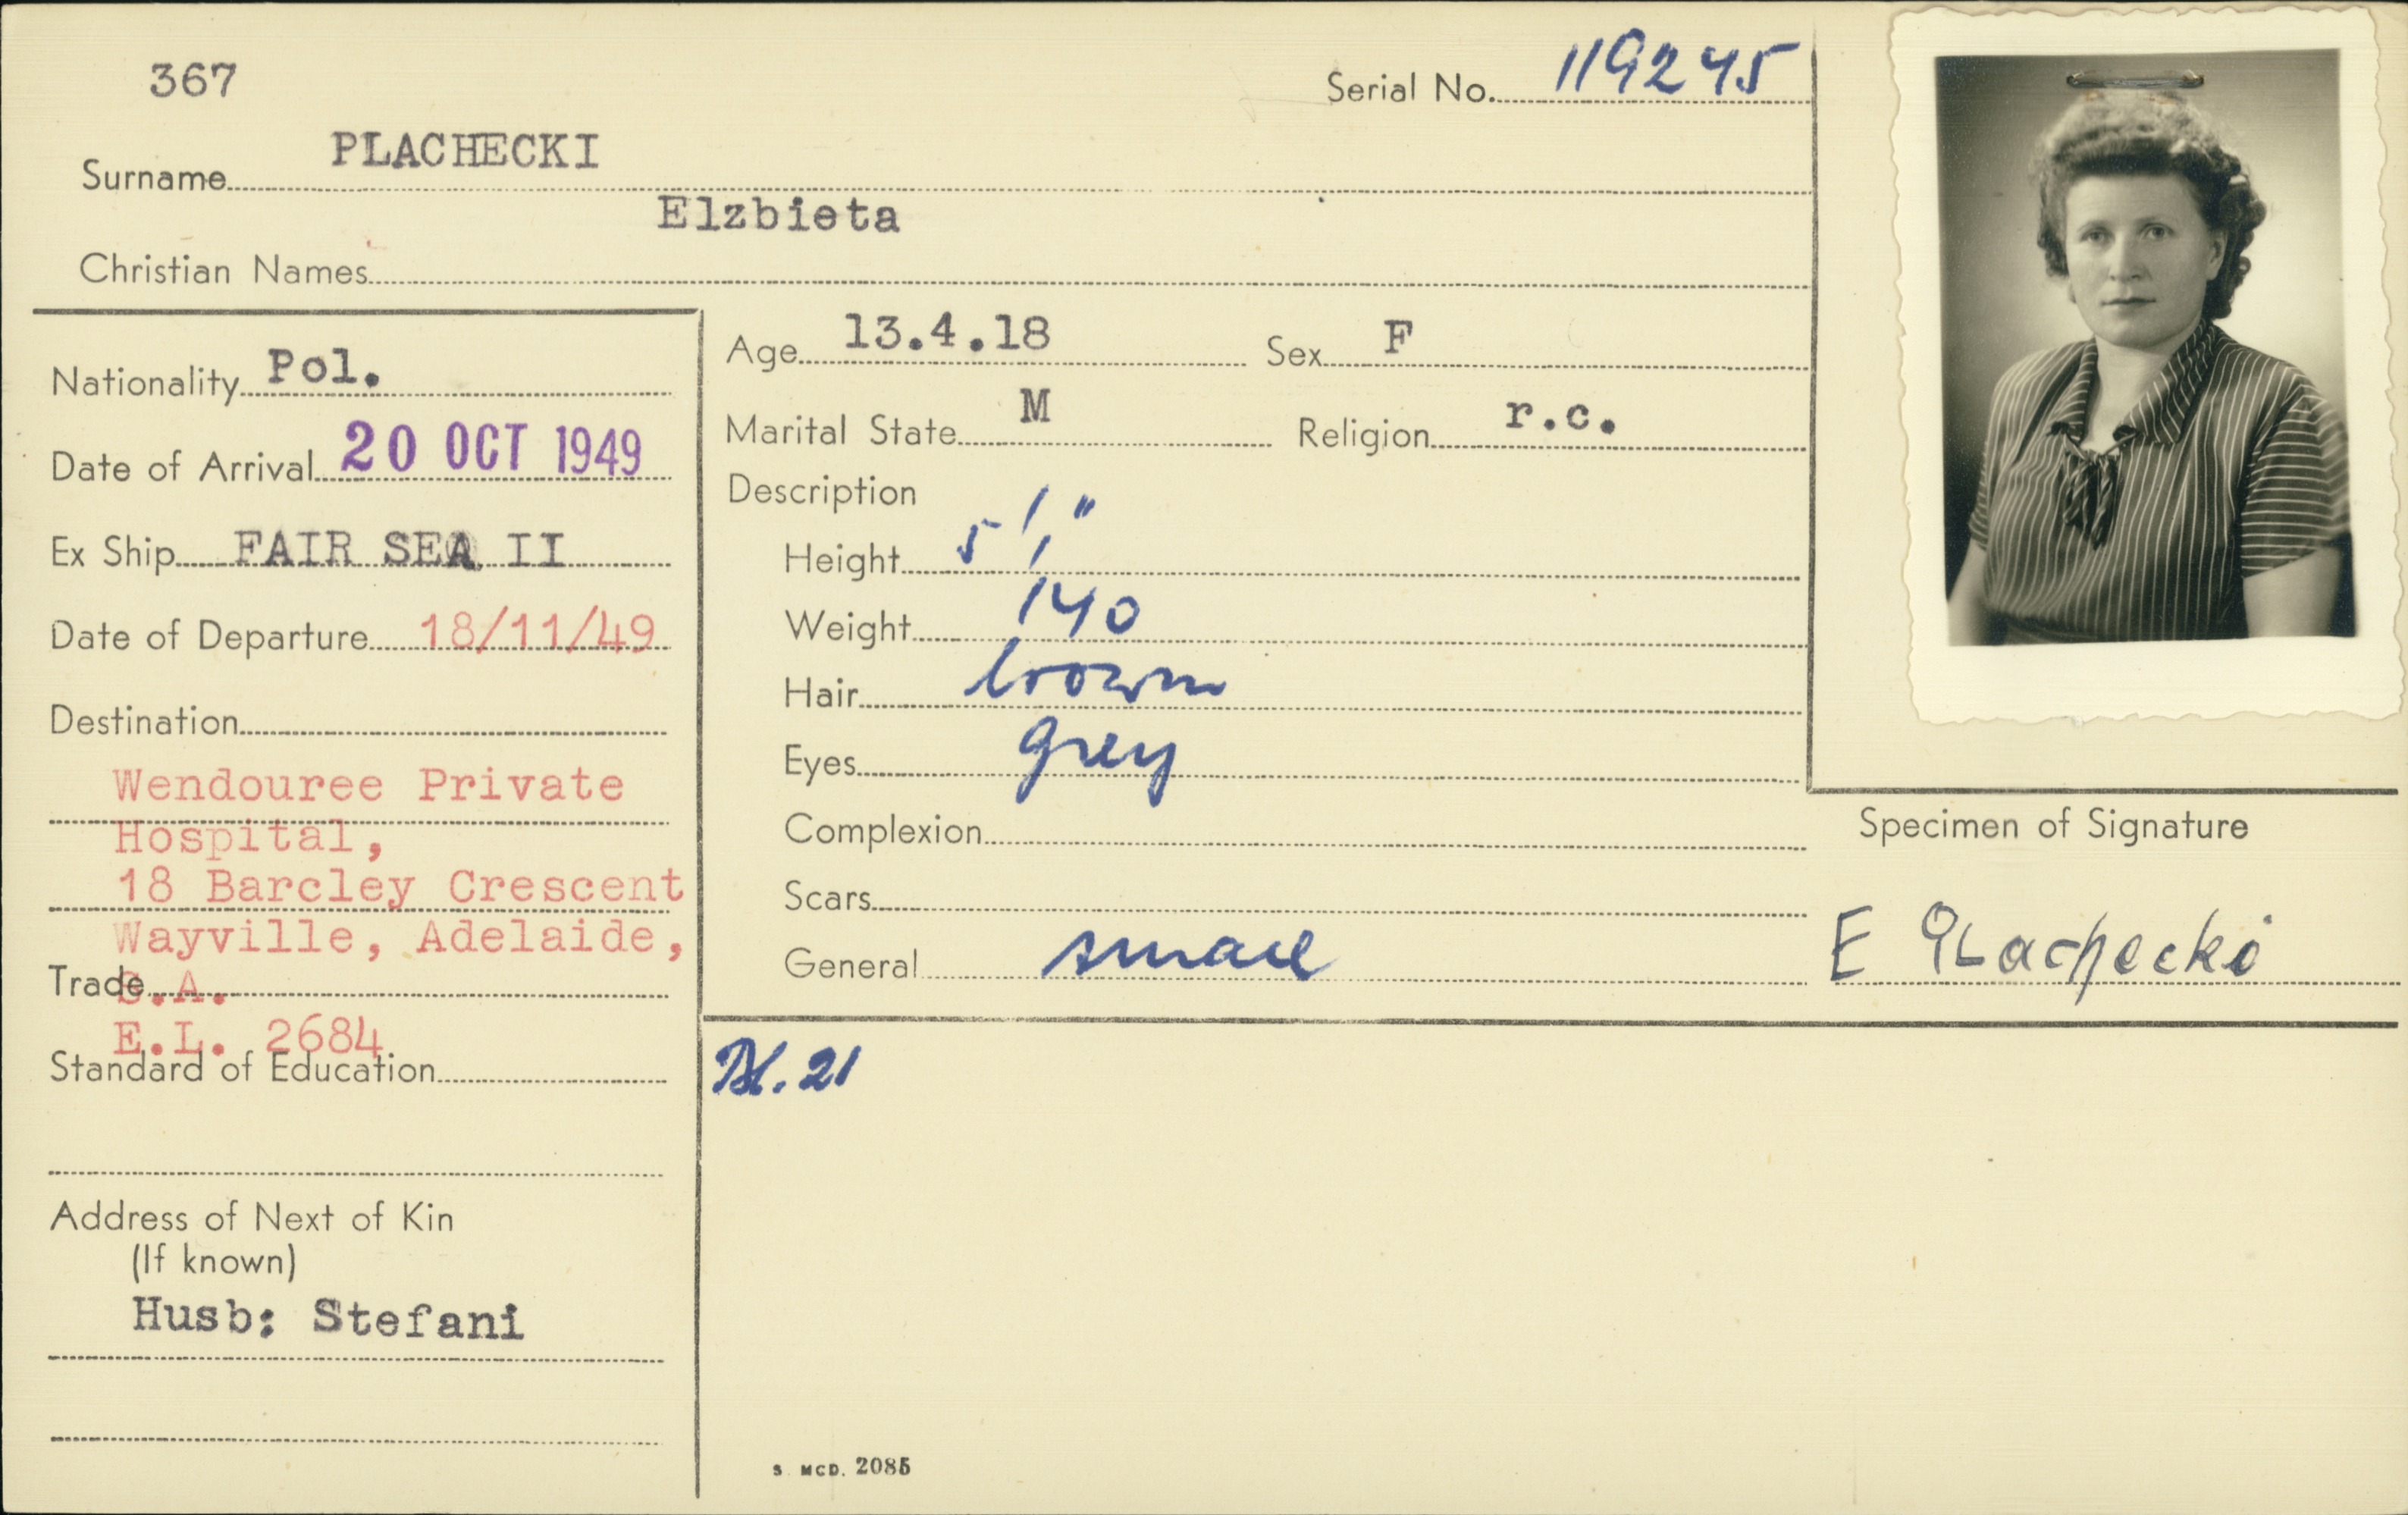 367
Serial No. 119245
Surname PLACHECKI
Christian Names Elzbieta
Nationality Pol.
Date of Arrival 20 OCT 1949
Ex Ship FAIR SEA II
Date of Departure 18/11/49
Destination
Wendouree Private
Hospital,
18 Barcley Crescent
Wayville, Adelaide,
S.A.
Trade
E.L. 2684
Standard of Education
Address of Next of Kin
(If known)
Husb: Stefani
Age 13.4.18 Sex F
Marital State M Religion r.c.
Description
Height 5' 1"
Weight 140
Hair brown
Eyes grey
Complexion
Scars
General small
Bl. 21
S MCD. 2085
Specimen of Signature
E Plachecki